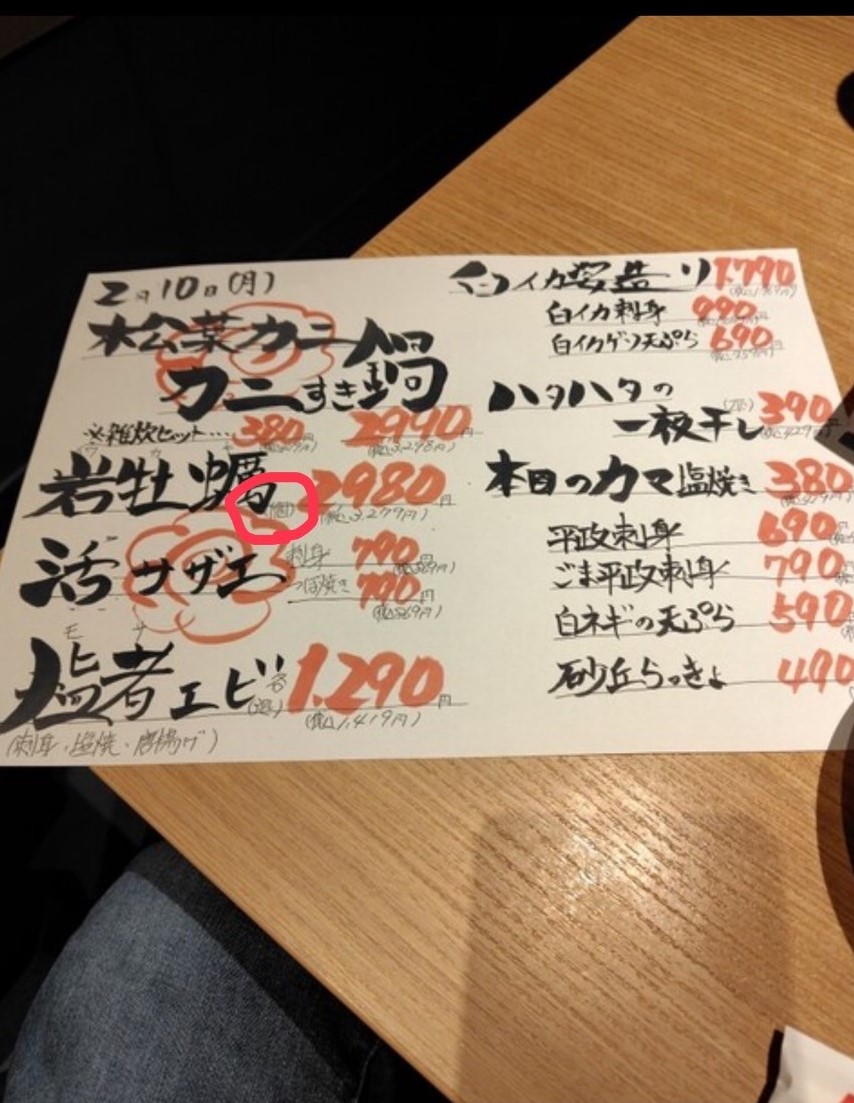 2月10日(月)
松葉カニ
カニすき鍋
※雑炊セット… 380円 2990円
(税込3,298円)
岩牡蠣 2980円
(税込3,279円)
活サザエ 刺身 790円
(税込869円)
つぼ焼き 790円
(税込869円)
モサ
猛者エビ 各 1,290円
(税込1,419円)
(刺身・塩焼・唐揚げ)
白イカ姿造り 1,790
白イカ刺身 990
白イカゲソ天ぷら 690
ハタハタの
一夜干し 390
本日のカマ塩焼き 380
平政刺身 690
ごま平政刺身 790
白ネギの天ぷら 590
砂丘らっきょ 490